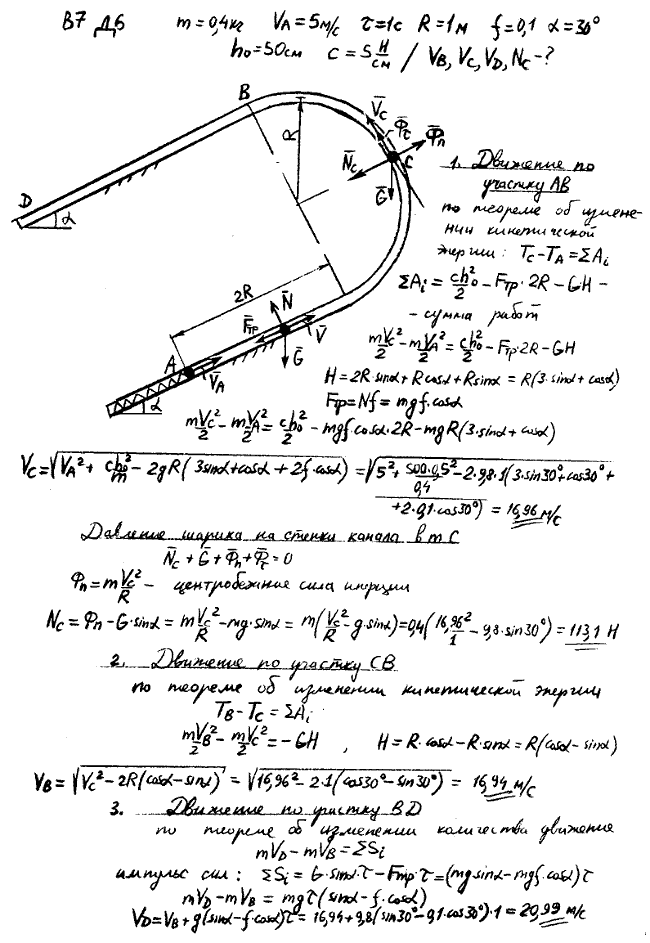 В7 Д6 m = 0,4кг V_A = 5м/с τ = 1с R = 1м f = 0,1 α = 30°
h₀ = 50см c = 5 Н/см / V_B, V_C, V_D, N_C - ?
B
V̄_C
Φ̄_τ
Φ̄_n
R
N̄_C
C
Ḡ
D
α
2R
N̄
F̄_тр
V̄
A
V̄_A
Ḡ
α
1. Движение по
участку AB
по теореме об измене-
нии кинетической
энергии: T_C - T_A = ΣA_i
ΣA_i = ch₀²/2 - F_тр·2R - GH -
- сумма работ
mV_C²/2 - mV_A²/2 = ch₀²/2 - F_тр·2R - GH
H = 2R·sinα + Rcosα + Rsinα = R(3·sinα + cosα)
F_тр = Nf = mgf·cosα
mV_C²/2 - mV_A²/2 = ch₀²/2 - mgf·cosα·2R - mgR(3·sinα + cosα)
V_C = √(V_A² + ch₀²/m - 2gR(3sinα + cosα + 2f·cosα)) = √(5² + 500·0,5²/0,4 - 2·9,8·1(3·sin30° + cos30° +
+ 2·0,1·cos30°)) = 16,96 м/с
Давление шарика на стенки канала в т C
N̄_C + Ḡ + Φ̄_n + Φ̄_τ = 0
Φ_n = mV_C²/R - центробежная сила инерции
N_C = Φ_n - G·sinα = mV_C²/R - mg·sinα = m(V_C²/R - g·sinα) = 0,4(16,96²/1 - 9,8·sin30°) = 113,1 Н
2. Движение по участку CB
по теореме об изменении кинетической энергии
T_B - T_C = ΣA_i
mV_B²/2 - mV_C²/2 = - GH , H = R·cosα - R·sinα = R(cosα - sinα)
V_B = √(V_C² - 2R(cosα - sinα)) = √(16,96² - 2·1(cos30° - sin30°)) = 16,94 м/с
3. Движение по участку BD
по теореме об изменении количества движения
mV_D - mV_B = ΣS_i
импульс сил: ΣS_i = G·sinα·τ - F_тр·τ = (mg sinα - mgf·cosα)τ
mV_D - mV_B = mgτ(sinα - f·cosα)
V_D = V_B + g(sinα - f·cosα)τ = 16,94 + 9,8(sin30° - 0,1·cos30°)·1 = 20,99 м/с